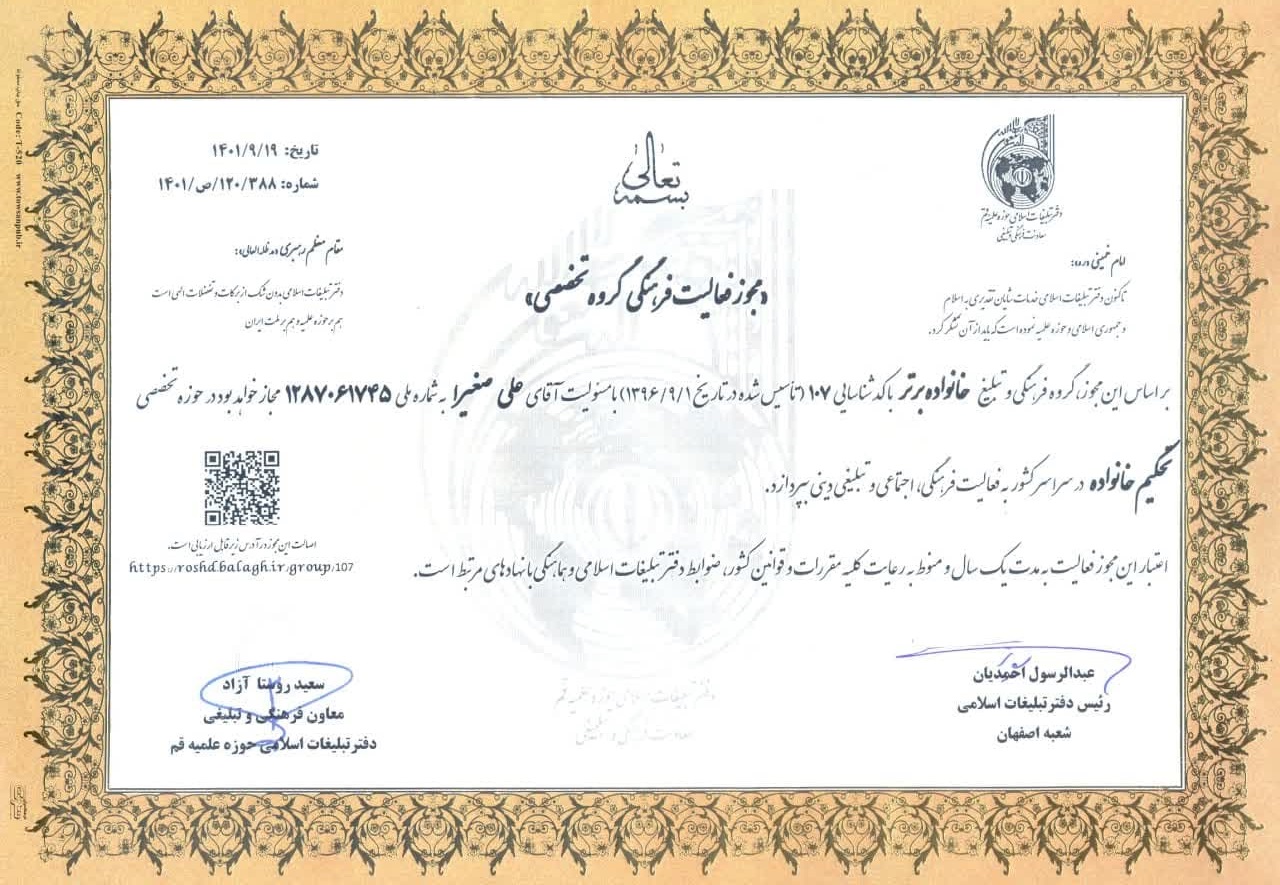 بسمه تعالی
تاریخ: ۱۴۰۱/۹/۱۹
شماره: ۱۲۰/۳۸۸/ص/۱۴۰۱
دفتر تبلیغات اسلامی حوزه علمیه قم
معاونت فرهنگی و تبلیغی
امام خمینی «ره»:
تاکنون دفتر تبلیغات اسلامی خدمات شایان تقدیری به اسلام
و جمهوری اسلامی و حوزه علمیه نموده است که باید از آن تشکر کرد.
مقام معظم رهبری «مدظله العالی»:
دفتر تبلیغات اسلامی بدون شک از برکات و تفضلات الهی است
هم بر حوزه علمیه و هم بر ملت ایران
«مجوز فعالیت فرهنگی گروه تخصصی»
بر اساس این مجوز، گروه فرهنگی و تبلیغ خانواده برتر با کد شناسایی ۱۰۷ (تأسیس شده در تاریخ ۱۳۹۶/۹/۱) با مسئولیت آقای علی صغیرا به شماره ملی ۱۲۸۷۰۶۱۷۴۵ مجاز خواهد بود در حوزه تخصصی
تحکیم خانواده در سراسر کشور به فعالیت فرهنگی، اجتماعی و تبلیغی دینی بپردازد.
اعتبار این مجوز فعالیت به مدت یک سال و منوط به رعایت کلیه مقررات و قوانین کشور، ضوابط دفتر تبلیغات اسلامی و هماهنگی با نهادهای مرتبط است.
اصالت این مجوز در آدرس زیر قابل ارزیابی است.
https://roshd.balagh.ir/group/107
عبدالرسول احمدیان
رئیس دفتر تبلیغات اسلامی
شعبه اصفهان
سعید روستا آزاد
معاون فرهنگی و تبلیغی
دفتر تبلیغات اسلامی حوزه علمیه قم
دفتر تبلیغات اسلامی حوزه علمیه قم
معاونت فرهنگی و تبلیغی
Code: T-520 www.towsanpub.ir